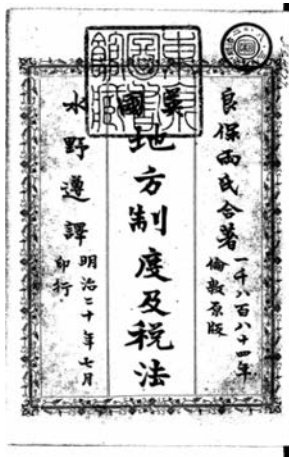 良保両氏合著
一千八百八十四年
倫敦原版
英國地方制度及税法
水野遵譯
明治二十年七月
印行
東京圖書館藏